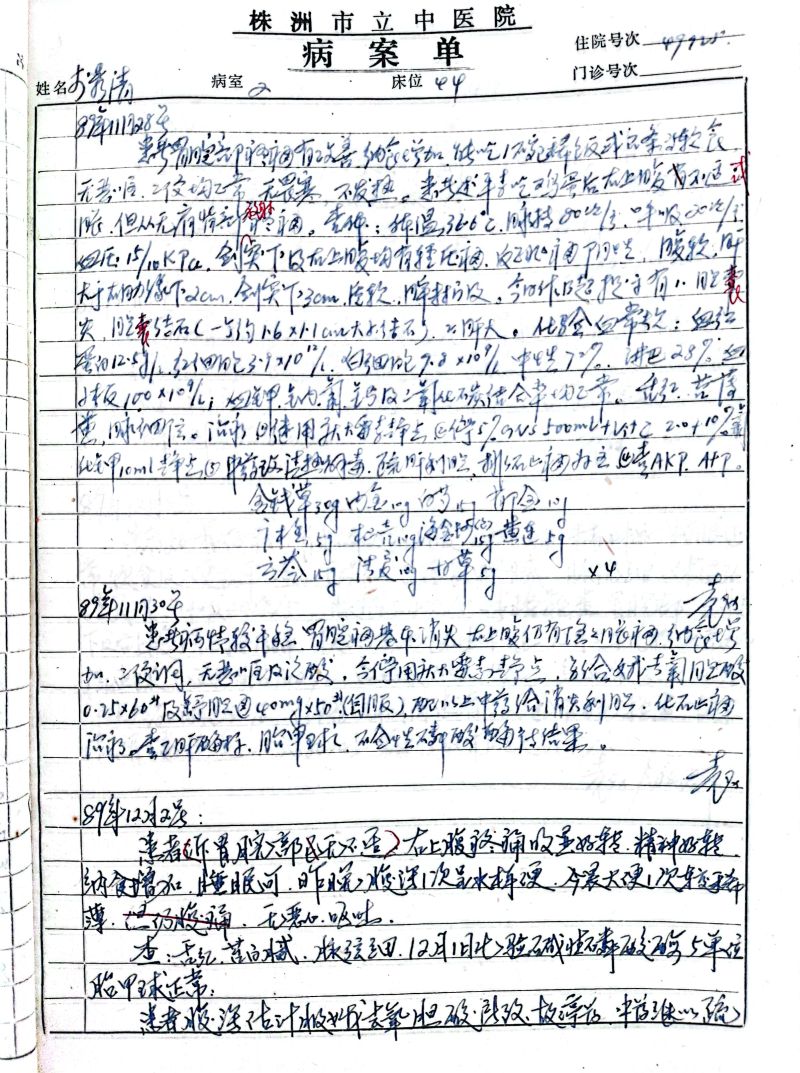 株洲市立中医院
病案单
住院号次
门诊号次
姓名 李景清 病室 2 床位 44
89年11月28号
患者胃脘部疼痛有改善，纳食增加，能吃1碗稀饭或面条等软食，
无恶心呕，二便均正常，无畏寒，不发热。患者述平素吃鸡蛋后右上腹有不适
胀，但从无疼痛。查体：体温36.6℃，脉搏80次/分，呼吸20次/分，
血压15/10KPa，剑突下及右上腹均有轻压痛，反跳痛阴性，腹软，肝
大于右肋缘下2cm，剑突下3cm，质软，脾未扪及，今日作B超提示有1、胆囊
炎，胆囊结石（一约1.6×1.1cm大小结石），2、肝大。化验血常规：血红
蛋白12.5g/L，红细胞3.9×10¹²/L，白细胞9.8×10⁹/L，中性72%，淋巴28%，血
小板100×10⁹/L；血钾、钠、氯、钙及二氧化碳结合率均正常。舌红，苔薄
黄，脉细弦。治疗 静点 5%GNS 500ml+VitC 2.0+10%氯
化钾10ml静点，中药改清热解毒，疏肝利胆，排石止痛为主 查AKP、AFP。
金钱草30g 内金10g 白芍15g 郁金10g
广木香5g 枳壳10g 海金沙15g 黄连5g
云苓15g 法夏10g 甘草5g ×4
89年11月30号
患者病情较平稳，胃脘痛基本消失，右上腹仍有胀痛，纳食增
加，二便调，无恶心呕及泛酸，今停用 静点，给去氧胆酸
0.25×60 及舒胆通40mg×50（口服），配以上中药给消炎利胆，化石止痛
治疗。查乙肝两对，胎甲球，碱性磷酸酶待结果。
89年12月2号：
患者诉胃脘部无不适，右上腹疼痛明显好转，精神好转，
纳食增加，睡眠可，昨晚腹泻1次呈水样便，今晨大便1次较稀
薄，无恶心呕吐。
查：舌红，苔白腻，脉弦细，12月1日化验碱性磷酸酶5单位，
胎甲球正常；
患者腹泻估计服去氧胆酸所致，故停药，中药继以疏